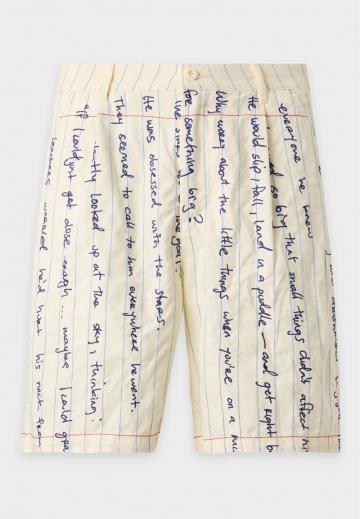 everyone he knew
so big that small things didn't affect hi
He would slip, fall, land in a puddle — and get right b
Why worry about the little things when you're on a mi
for something big?
He was obsessed with the stars.
They seemed to call to him everywhere he went.
antly looked up at the sky, thinking:
"If I could just get close enough... maybe I could gra
teachers worried he'd hurt his neck from